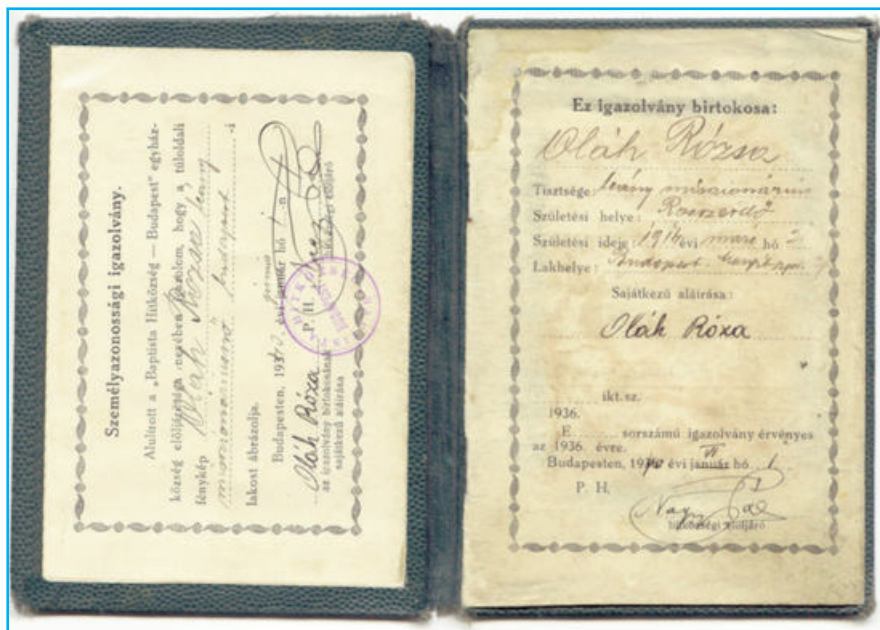 Személyazonossági igazolvány.
Alulított a „Baptista Hitközség — Budapest” egyház-
község elöljárósága nevében igazolom, hogy a túloldali
fénykép Oláh Rózsa leány
misszionáriusnő budapesti -i
lakost ábrázolja.
Budapesten, 1940 évi január hó 1-n
Oláh Róza P. H.
az igazolvány birtokosának
sajátkezű aláírása
Ez igazolvány birtokosa:
Oláh Rózsa
Tisztsége: leány misszionárius
Születési helye:
Születési ideje: 1916 évi hó
Lakhelye: Budapest
Sajátkezű aláírása:
Oláh Róza
ikt. sz.
1936.
E sorszámú igazolvány érvényes
az 1936. évre.
Budapesten, 1940 évi január hó 1
P. H,
Nagy Pál
hitközségi elöljáró